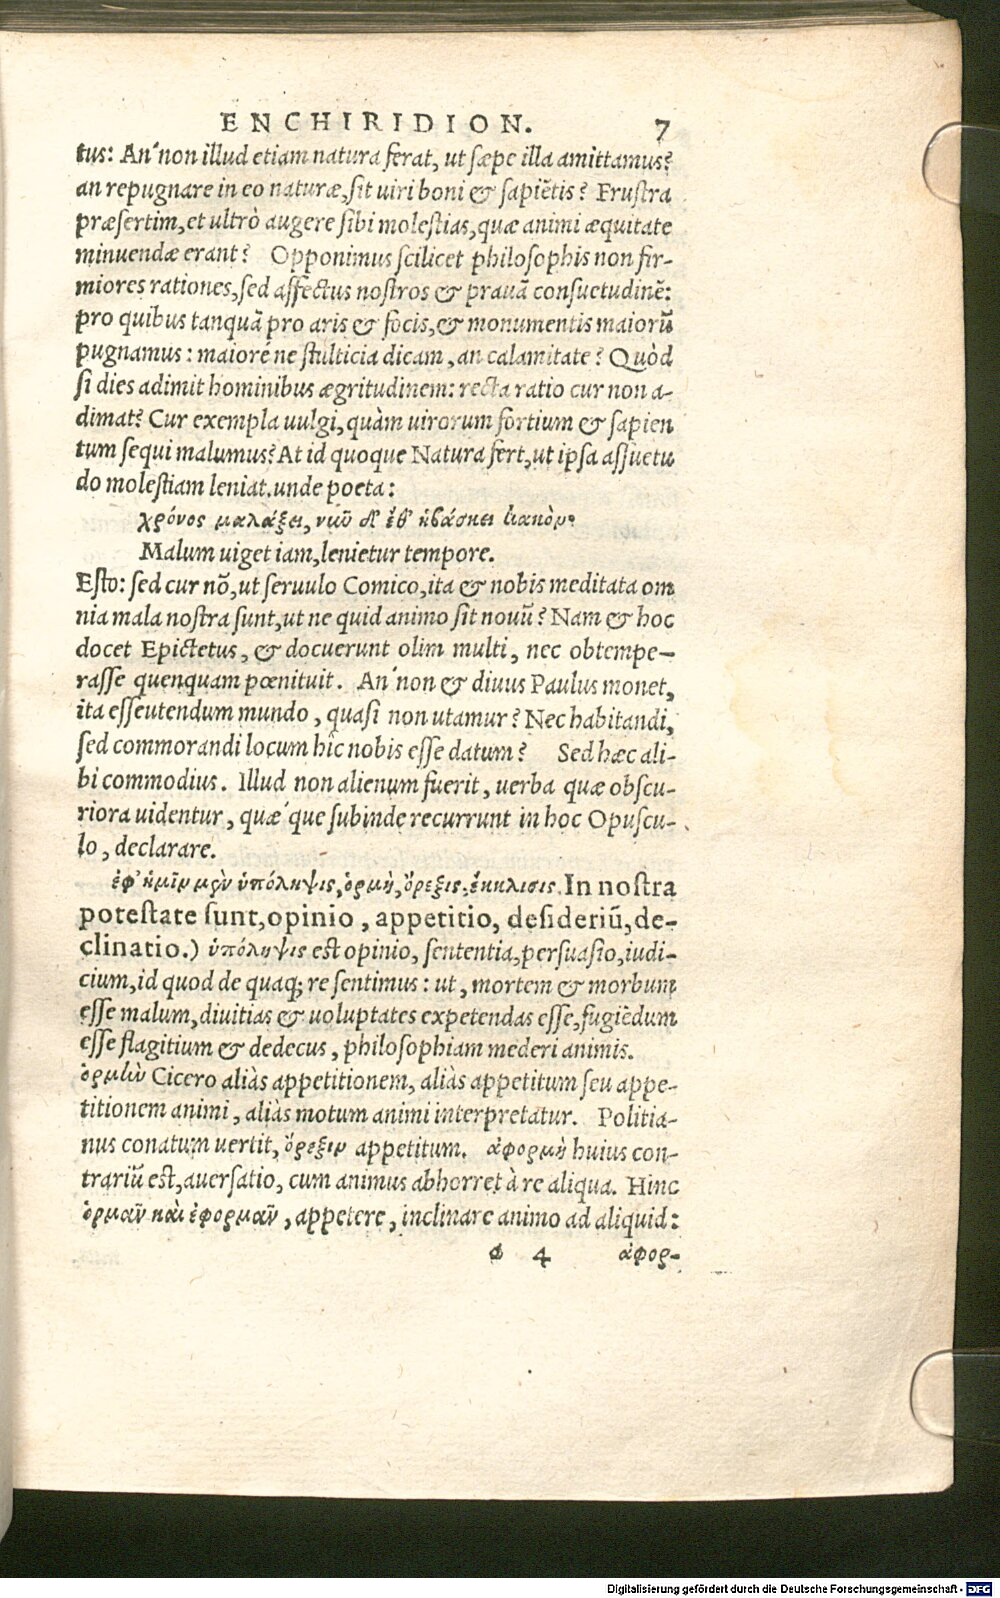 ENCHIRIDION. 7
tus: An' non illud etiam natura ferat, ut sæpe illa amittamus?
an repugnare in eo naturæ, sit uiri boni & sapiẽtis? Frustra
præsertim, et ultrò augere sibi molestias, quæ animi æquitate
minuendæ erant? Opponimus scilicet philosophis non fir-
miores rationes, sed affectus nostros & prauã consuetudinẽ:
pro quibus tanquã pro aris & focis, & monumentis maiorũ
pugnamus: maiore' ne stulticia dicam, an calamitate? Quòd
si dies adimit hominibus ægritudinem: recta ratio cur non a-
dimat? Cur exempla uulgi, quàm uirorum fortium & sapien
tum sequi malumus? At id quoque Natura fert, ut ipsa assuetu
do molestiam leniat. unde poeta:
χρόνος μαλάξει, νῦν δ' ἔθ' ἡβάσκει κακόν.
Malum uiget iam, lenietur tempore.
Esto: sed cur nõ, ut seruulo Comico, ita & nobis meditata om
nia mala nostra sunt, ut ne quid animo sit nouũ? Nam & hoc
docet Epictetus, & docuerunt olim multi, nec obtempe-
rasse quenquam pœnituit. An' non & diuus Paulus monet,
ita esse utendum mundo, quasi non utamur? Nec habitandi,
sed commorandi locum hîc nobis esse datum? Sed hæc ali-
bi commodius. Illud non alienum fuerit, uerba quæ obscu-
riora uidentur, quæ' que subinde recurrunt in hoc Opuscu-
lo, declarare.
ἐφ' ἡμῖν μὲν ὑπόληψις, ὁρμή, ὄρεξις, ἔκκλισις. In nostra
potestate sunt, opinio, appetitio, desideriũ, de-
clinatio.) ὑπόληψις est opinio, sententia, persuasio, iudi-
cium, id quod de quaq; re sentimus: ut, mortem & morbum
esse malum, diuitias & uoluptates expetendas esse, fugiẽdum
esse flagitium & dedecus, philosophiam mederi animis.
ὁρμὴν Cicero aliàs appetitionem, aliàs appetitum seu appe-
titionem animi, aliàs motum animi interpretatur. Politia-
nus conatum uertit, ὄρεξιν appetitum. ἀφορμὴ huius con-
trariũ est, auersatio, cum animus abhorret à re aliqua. Hinc
ὁρμᾶν καὶ ἐφορμᾶν, appetere, inclinare animo ad aliquid:
4 ἀφορ-
Digitalisierung gefördert durch die Deutsche Forschungsgemeinschaft - DFG